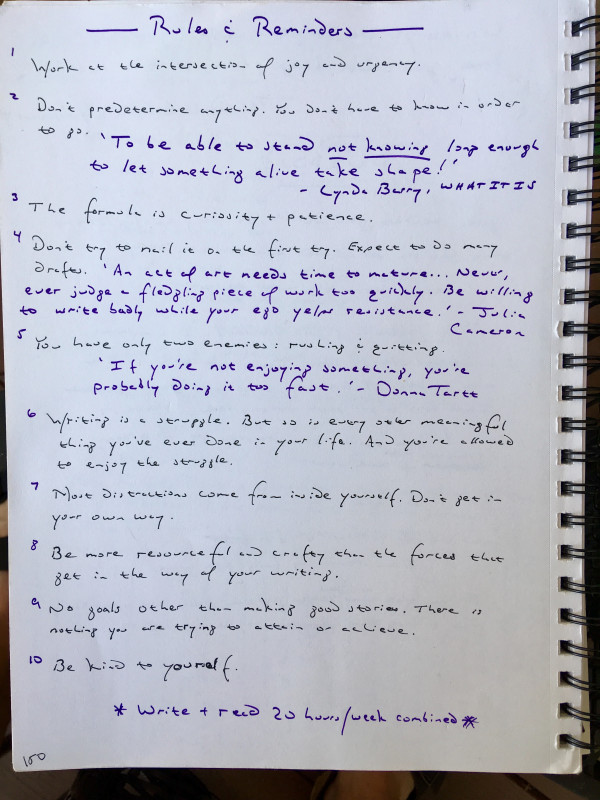 Rules & Reminders
1 Work at the intersection of joy and urgency.
2 Don't predetermine anything. You don't have to know in order
to go. 'To be able to stand not knowing long enough
to let something alive take shape!'
- Lynda Barry, WHAT IT IS
3 The formula is curiosity + patience.
4 Don't try to nail it on the first try. Expect to do many
drafts. 'An act of art needs time to mature... Never,
ever judge a fledgling piece of work too quickly. Be willing
to write badly while your ego yelps resistance.' - Julia
Cameron
5 You have only two enemies: rushing & quitting.
'If you're not enjoying something, you're
probably doing it too fast.' - Donna Tartt
6 Writing is a struggle. But so is every other meaningful
thing you've ever done in your life. And you're allowed
to enjoy the struggle.
7 Most distractions come from inside yourself. Don't get in
your own way.
8 Be more resourceful and crafty than the forces that
get in the way of your writing.
9 No goals other than making good stories. There is
nothing you are trying to attain or achieve.
10 Be kind to yourself.
* Write + read 20 hours/week combined *
150